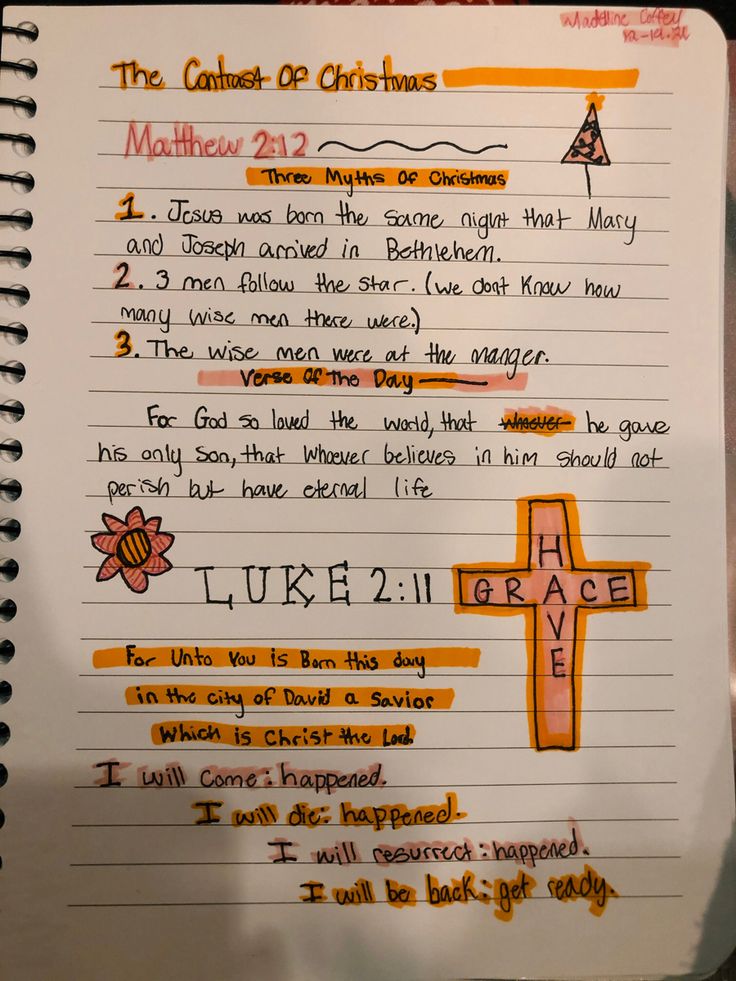 Madeline Coffey
12-19-21
The Contrast Of Christmas
Matthew 2:12
Three Myths Of Christmas
1. Jesus was born the same night that Mary
and Joseph arrived in Bethlehem.
2. 3 men follow the star. (we dont know how
many wise men there were.)
3. The wise men were at the manger.
Verse Of The Day
For God so loved the world, that whoever he gave
his only son, that whoever believes in him should not
perish but have eternal life
LUKE 2:11
HAVE
GRACE
For Unto You is Born this day
in the city of David a Savior
Which is Christ the Lord.
I will come: happened.
I will die: happened.
I will resurrect: happened.
I will be back: get ready.